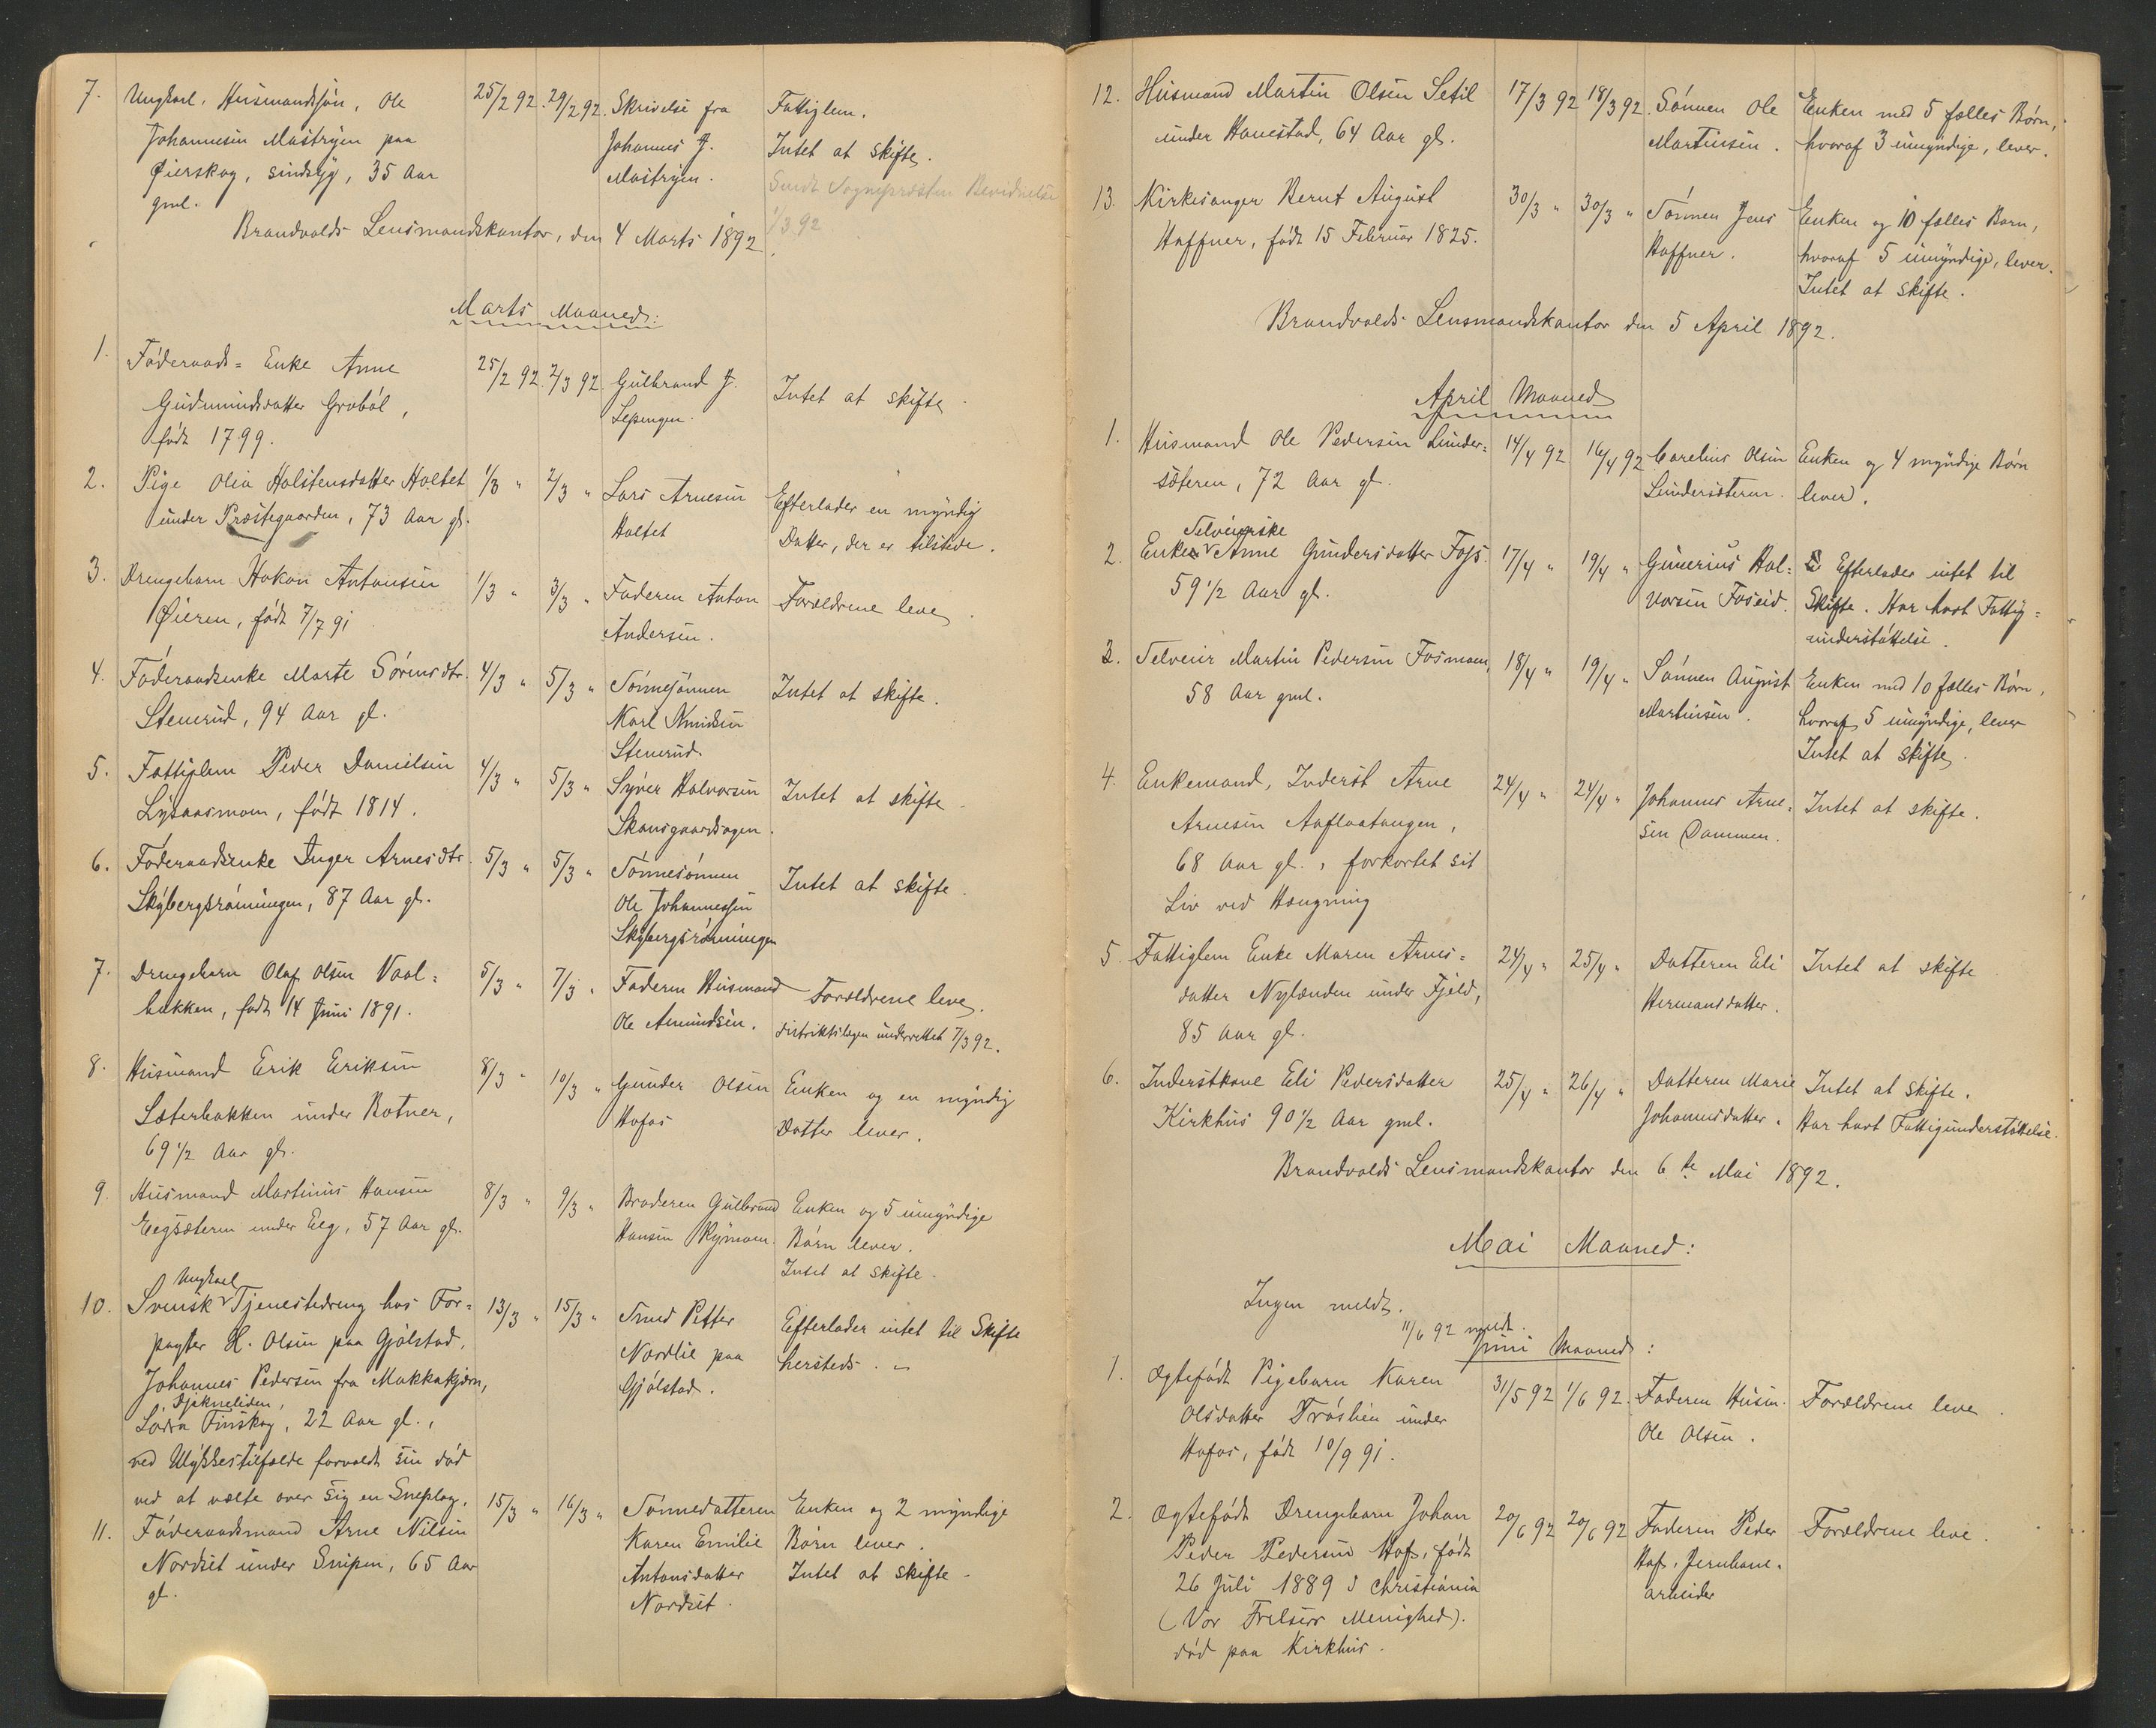 7. Ungkarl, Husmandssøn, Ole 25/2 92. 29/2 92. Skrivelse fra Fattiglem.
Johannesen Mastryen paa Johannes J. Intet at skifte.
Øierskog, sindsyg, 35 Aar Mastryen. Sendt Sognepræsten Bevidnelse
gml. 1/3 92
Brandvolds Lensmandskontor, den 4 Marts 1892.
Marts Maaned:
1. Føderaads= Enke Anne 25/2 92. 2/3 92. Gulbrand J. Intet at skifte.
Gudmundsdatter Grobøl, Lepengen.
født 1799.
2. Pige Olia Halstensdatter Holtet 1/3 " 2/3 " Lars Arnesen Efterlader en myndig
under Præstegaarden, 73 Aar gl. Holtet Datter, der er tilstede.
3. Drengebarn Hakon Antonsen 1/3 " 3/3 " Faderen Anton Forældrene leve.
Øieren, født 7/7 91 Andersen.
4. Føderaadsenke Marte Sørensdtr. 4/3 " 5/3 " Sønnesønnen Intet at skifte.
Stenerud, 94 Aar gl. Karl Knudsen
Stenerud
5. Fattiglem Peder Danielsen 4/3 " 5/3 " Syver Halvorsen Intet at skifte.
Lysaasmoen, født 1814. Skansgaardsogen.
6. Føderaadsenke Inger Arnesdtr. 5/3 " 5/3 " Sønnesønnen Intet at skifte.
Skybergsrønningen, 87 Aar gl. Ole Johannessen
Skybergsrønningen
7. Drengebarn Olaf Olsen Vaal= 5/3 " 7/3 " Faderen Husmand Forældrene leve.
bakken, født 14 Juni 1891. Ole Amundsen. Distriktslægen underrettet 7/3 92.
8. Husmand Erik Eriksen 8/3 " 10/3 " Gunder Olsen Enken og en myndig
Sæterbakken under Botner, Hofos Datter lever.
69 1/2 Aar gl.
9. Husmand Martinus Hansen 8/3 " 9/3 " Broderen Gulbrand Enken og 5 umyndige
Eegsæteren under Eeg, 57 Aar gl. Hansen Rymoen. Børn lever.
Intet at skifte.
Ungkarl
10. Svensk Tjenestedreng hos For= 13/3 " 15/3 " Smed Petter Efterlader intet til Skifte
pagter H. Olsen paa Gjølstad, Nordlie paa hersteds.
Johannes Pedersen fra Mukkakjærn, Gjølstad.
Djekneliden,
Södra Finskog, 22 Aar gl.,
ved Ulykkestilfælde forvoldt sin død
ved at vælte over sig en Sneplog.
11. Føderaadsmand Arne Nilsen 15/3 " 16/3 " Sønnedatteren Enken og 2 myndige
Nordset under Snipen, 65 Aar Karen Emilie Børn lever.
gl. Antonsdatter Intet at skifte.
Nordset.
12. Husmand Martin Olsen Setil 17/3 92 18/3 92. Sønnen Ole Enken med 5 fælles Børn,
under Hanestad, 64 Aar gl. Martinsen. hvoraf 3 umyndige, lever.
13. Kirkesanger Bernt August 30/3 " 30/3 " Sønnen Jens Enken og 10 fælles Børn,
Haffner, født 15 Februar 1825. Haffner. hvoraf 5 umyndige, lever.
Intet at skifte.
Brandvolds Lensmandskontor den 5 April 1892.
April Maaned
1. Husmand Ole Pedersen Lunder= 14/4 92 16/4 92 Carelius Olsen Enken og 4 myndige Børn
sæteren, 72 Aar gl. Lundersæteren. lever.
Selveierske
2. Enke Anne Gundersdatter Fos. 17/4 " 19/4 " Gunerius Hal= Efterlader intet til
59 1/2 Aar gl. vorsen Foseid. Skifte. Har havt Fattig=
understøttelse.
3. Selveier Martin Pedersen Fosmoen, 18/4 " 19/4 " Sønnen August Enken med 10 fælles Børn,
58 Aar gml. Martinsen. hvoraf 5 umyndige, lever
Intet at skifte.
4. Enkemand, Inderst Arne 24/4 " 24/4 " Johannes Arne= Intet at skifte.
Arnesen Aaflaatangen, sen Dammen.
68 Aar gl., forkortet sit
Liv ved Hængning
5. Fattiglem Enke Maren Arnes= 24/4 " 25/4 " Datteren Eli Intet at skifte
datter Nylænden under Fjeld, Hermansdatter.
85 Aar gl.
6. Inderstkone Eli Pedersdatter 25/4 " 26/4 " Datteren Marie Intet at skifte.
Kirkhus 90 1/2 Aar gml. Johannesdatter. Har havt Fattigunderstøttelse.
Brandvolds Lensmandskontor den 6te Mai 1892.
Mai Maaned:
Ingen meldt.
11/6 92 meldt.
Juni Maaned:
1. Ægtefødt Pigebarn Karen 31/5 92 1/6 92. Faderen Husm. Forældrene leve.
Olsdatter Trøslien under Ole Olsen.
Hofos, født 10/9 91.
2. Ægtefødt Drengebarn Johan 20/6 92 20/6 92 Faderen Peder Forældrene leve.
Peder Pedersen Hof, født Hof, Jernbane=
26 Juli 1889 i Christiania arbeider
(Vor Frelsers Menighed).
død paa Kirkhus.